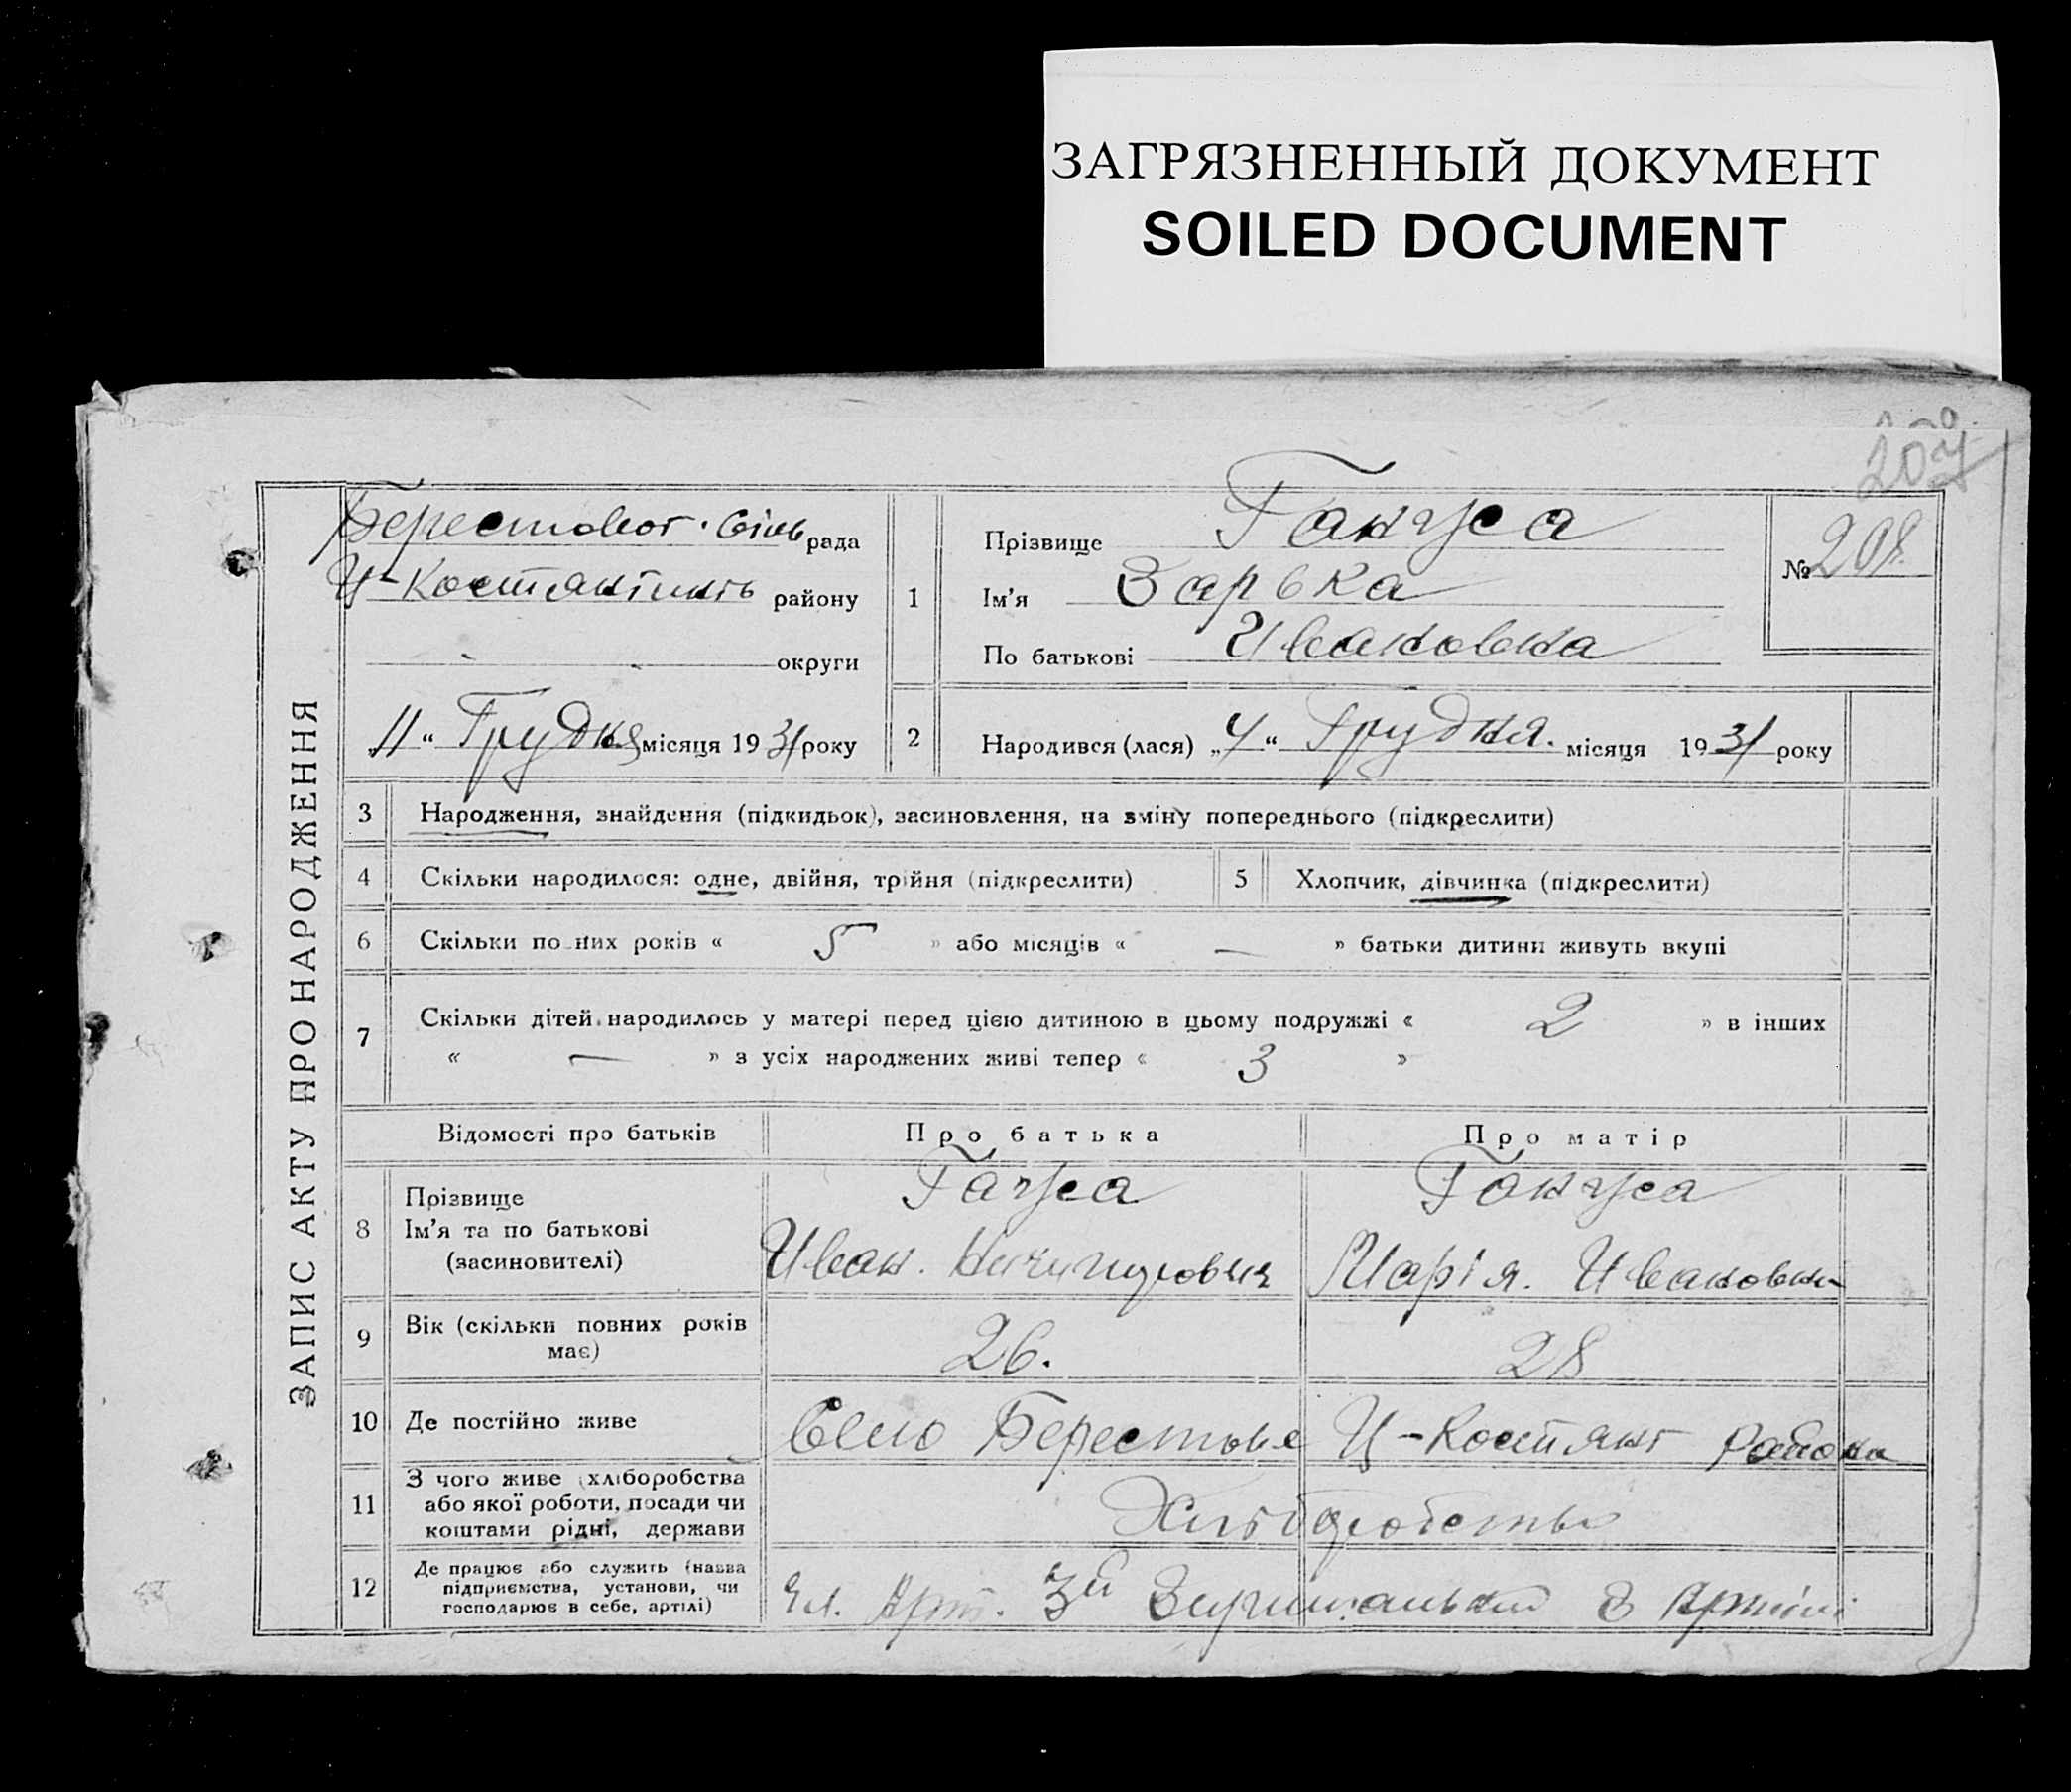 ЗАГРЯЗНЕННЫЙ ДОКУМЕНТ
SOILED DOCUMENT
207
ЗАПИС АКТУ ПРО НАРОДЖЕННЯ
Берестовог. Сіль рада
Ц-Костянтинг району
округи
11 “ Грудня місяця 1931 року
1
Прізвище Гануса
Ім'я Зарька
По батькові Ивановна
№ 208
2 Народився (лася) „4“ Грудня. місяця 1931 року
3 Народження, знайдення (підкидьок), засиновлення, на зміну попереднього (підкреслити)
4 Скільки народилося: одне, двійня, трійня (підкреслити) 5 Хлопчик, дівчинка (підкреслити)
6 Скільки повних років « 5 » або місяців « — » батьки дитини живуть вкупі
7 Скільки дітей народилось у матері перед цією дитиною в цьому подружжі « 2 » в інших
« — » з усіх народжених живі тепер « 3 »
Відомості про батьків Про батька Про матір
8 Прізвище Ім'я та по батькові (засиновителі)
Гануса Гануса
Иван. Ничипорович Марія. Ивановна
9 Вік (скільки повних років має) 26. 28
10 Де постійно живе Село Берестове Ц-Костянт района
11 З чого живе (хліборобства або якої роботи, посади чи коштами рідні, держави
Хліборобство
12 Де працює або служить (назва підприємства, установи, чи господарює в себе, артілі)
Чл. Арт. 3й В Артілі